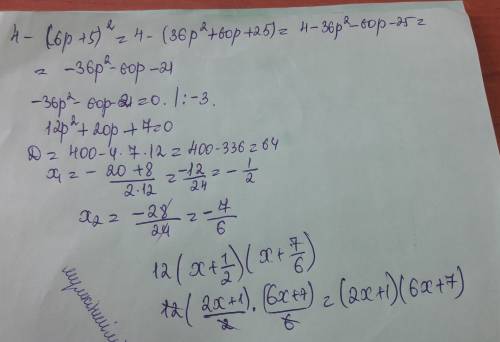 4 - (6p+5)² = 4 - (36p²+60p+25) = 4-36p²-60p-25 =
= -36p²-60p-21
-36p²-60p-21=0. |:-3.
12p²+20p+7=0
D = 400-4·7·12 = 400-336 = 64
x₁ = - 20+8/2·12 = -12/24 = - 1/2
x₂ = -28/24 = -7/6
12(x+1/2)(x+7/6)
12(2x+1)/2 · (6x+7)/6 = (2x+1)(6x+7)